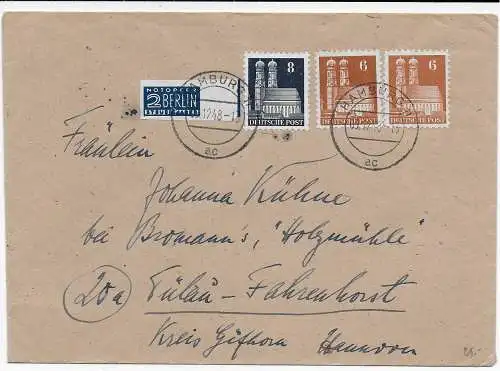 NOTOPFER
2 BERLIN
STEUERMARKE
8
DEUTSCHE POST
6
DEUTSCHE POST
6
DEUTSCHE POST
HAMBURG
.12.48.-1
ac
HAMBURG
ac
Fräulein
Johanna Kühne
bei Bromann's, "Holzmühle"
20a Tülau-Fahrenhorst
Kreis Gifhorn Hannover